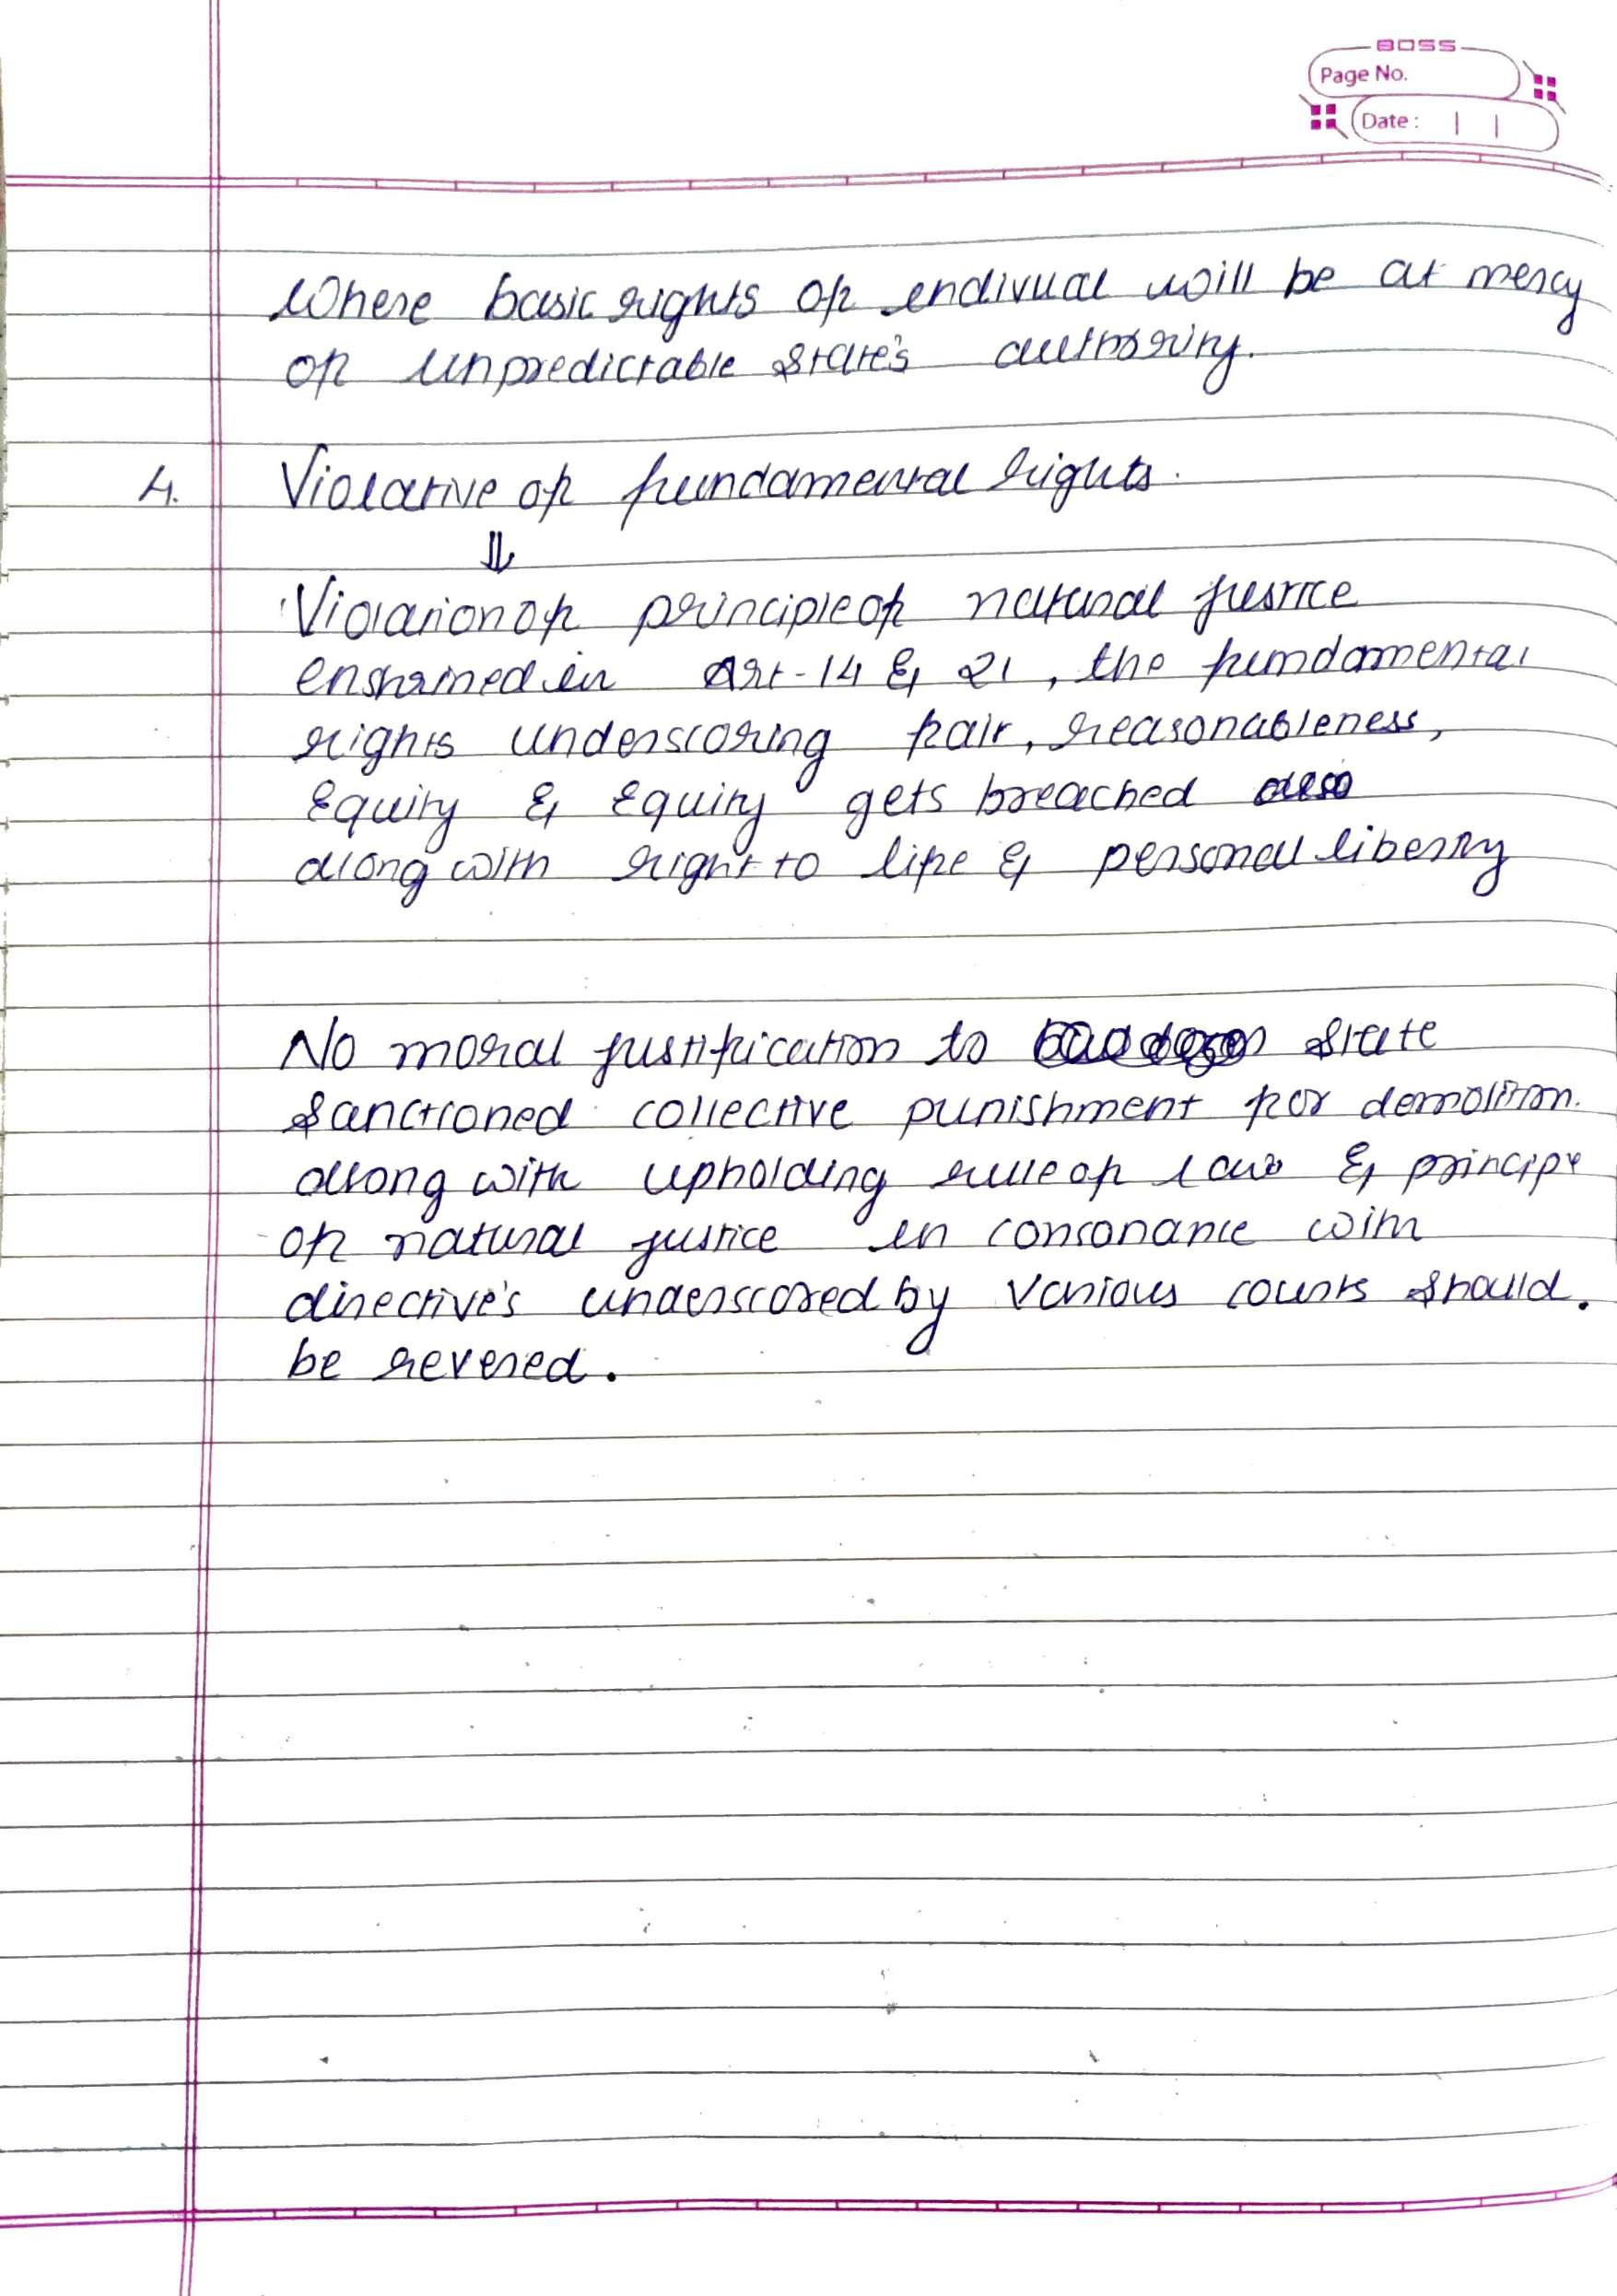 BOSS
Page No.
Date :
Where basic rights of endivual will be at mercy
of unpredictable state's authority.
4. Violative of fundamental rights.
⇓
Violation of principle of natural justice
enshrined in Art-14 & 21, the fundamental
rights underscoring fair, reasonableness,
Equity & Equity gets breached
along with right to life & personal liberty
No moral justification to state
sanctioned collective punishment for demolition.
along with upholding rule of law & principe
of natural justice in consonance with
directive's underscored by various courts should.
be revered.